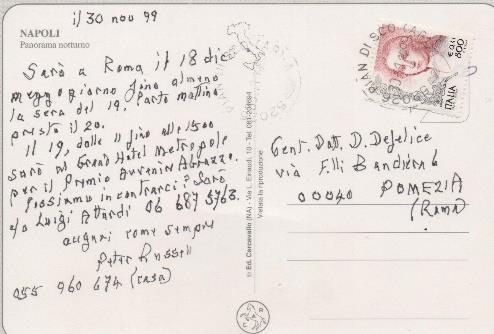 il 30 nov 99
NAPOLI
Panorama notturno
Sarò a Roma il 18 dic
mezzogiorno fino almeno
la sera del 19. Parto mattino
presto il 20.
Il 19, dalle 11 fino alle 1500
sarò al Grand Hotel Metropole
per il Premio
Possiamo incontrarci? Sarò
c/o Luigi Attardi 06 687 5763.
auguri come sempre
Peter Russell
055 960 674 (casa)
© Ed. Carcavallo (NA) - Via L. Einaudi, 19 - Tel.
Vietata la riproduzione
PIAN DI SCO
800
ITALIA
Gent. Dott. D. Defelice
via F.lli Bandiera 6
00040 POMEZIA
(Roma)